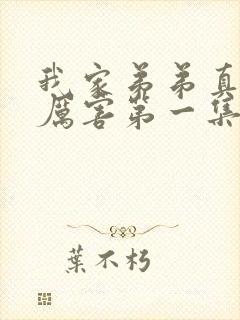 我家弟弟真
厲害第一集
葉不朽